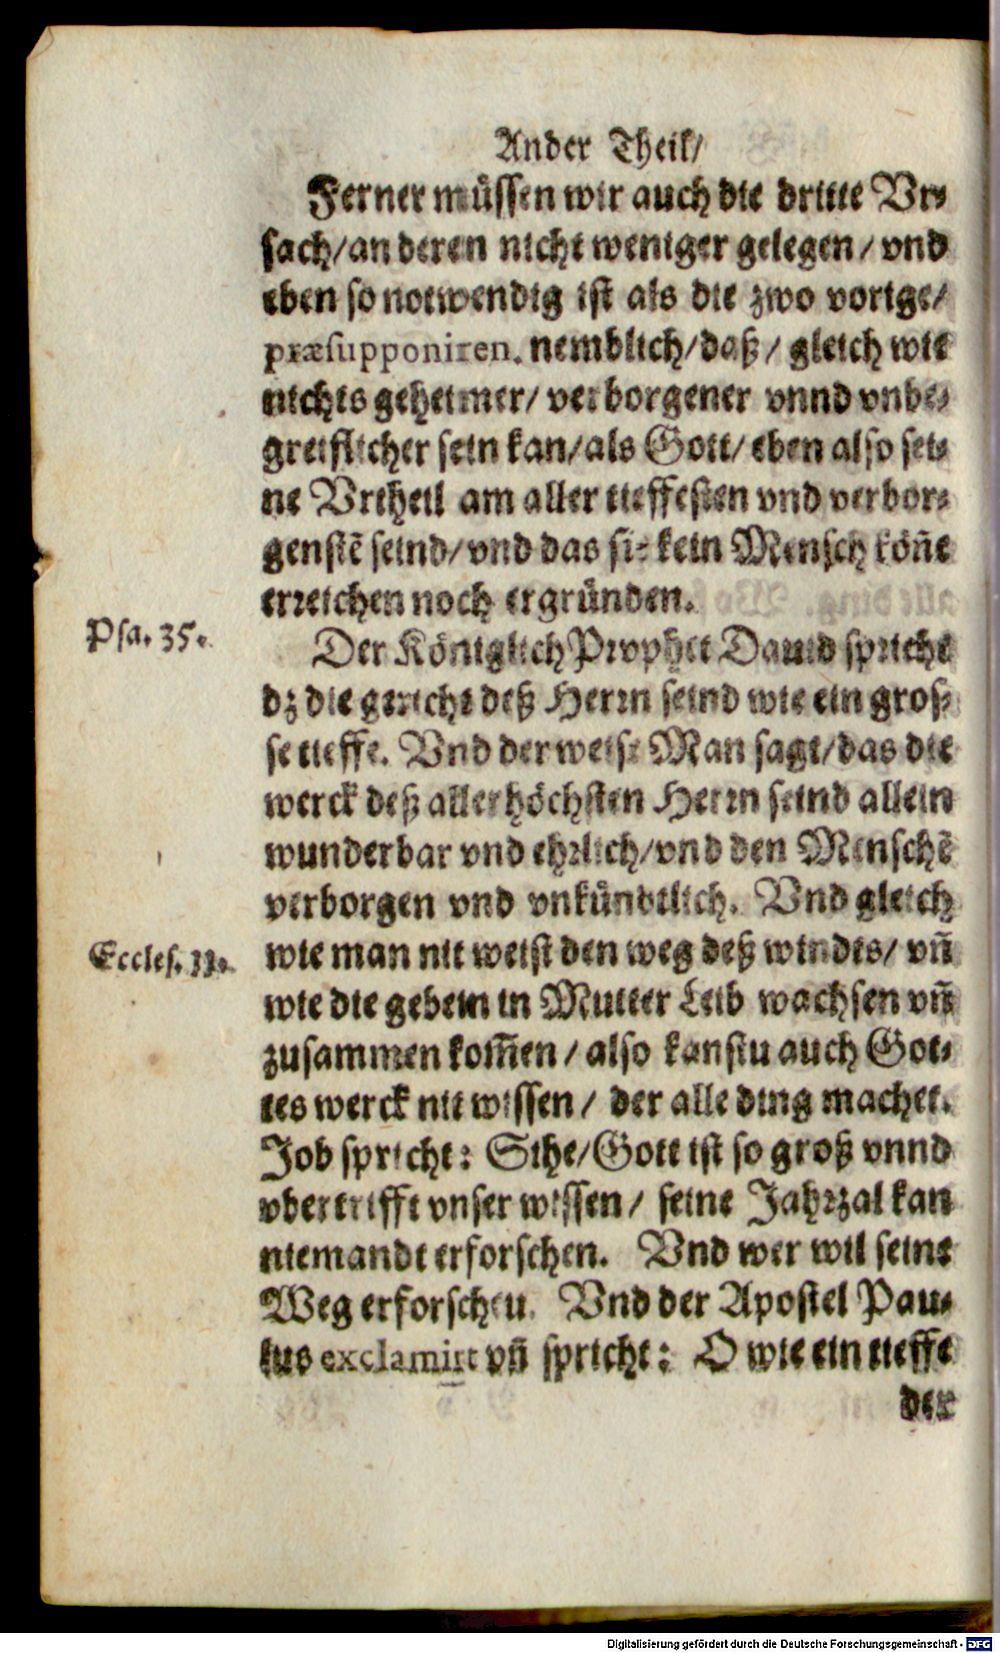 Ander Theil/
Ferner müssen wir auch die dritte Vr⸗
sach/an deren nicht weniger gelegen/ vnd
eben so notwendig ist als die zwo vorige/
præsupponiren, nemblich/daß/ gleich wie
nichts geheimer/ verborgener vnnd vnbe⸗
greiflicher sein kan/als Gott/ eben also sei⸗
ne Vrtheil am aller tieffesten vnd verbor⸗
genstē seind/ vnd das sie kein Mensch köñe
erreichen noch ergründen.
Psa. 35.
Der Königlich Prophet Dauid spricht
dz die gericht deß Herrn seind wie ein gros⸗
se tieffe. Vnd der weise Man sagt/das die
werck deß allerhöchsten Herrn seind allein
wunderbar vnd ehrlich/vnd den Menschē
verborgen vnd vnkündtlich. Vnd gleich
Eccles. 11.
wie man nit weist den weg deß windes/ vñ
wie die gebein in Mutter Leib wachsen vñ
zusammen kom̃en / also kanstu auch Got⸗
tes werck nit wissen / der alle ding machet.
Job spricht: Sihe/Gott ist so groß vnnd
vbertrifft vnser wissen / seine Jahrzal kan
niemandt erforschen. Vnd wer wil seine
Weg erforschen. Vnd der Apostel Pau⸗
lus exclamirt vñ spricht: O wie ein tieffe
der
Digitalisierung gefördert durch die Deutsche Forschungsgemeinschaft - DFG